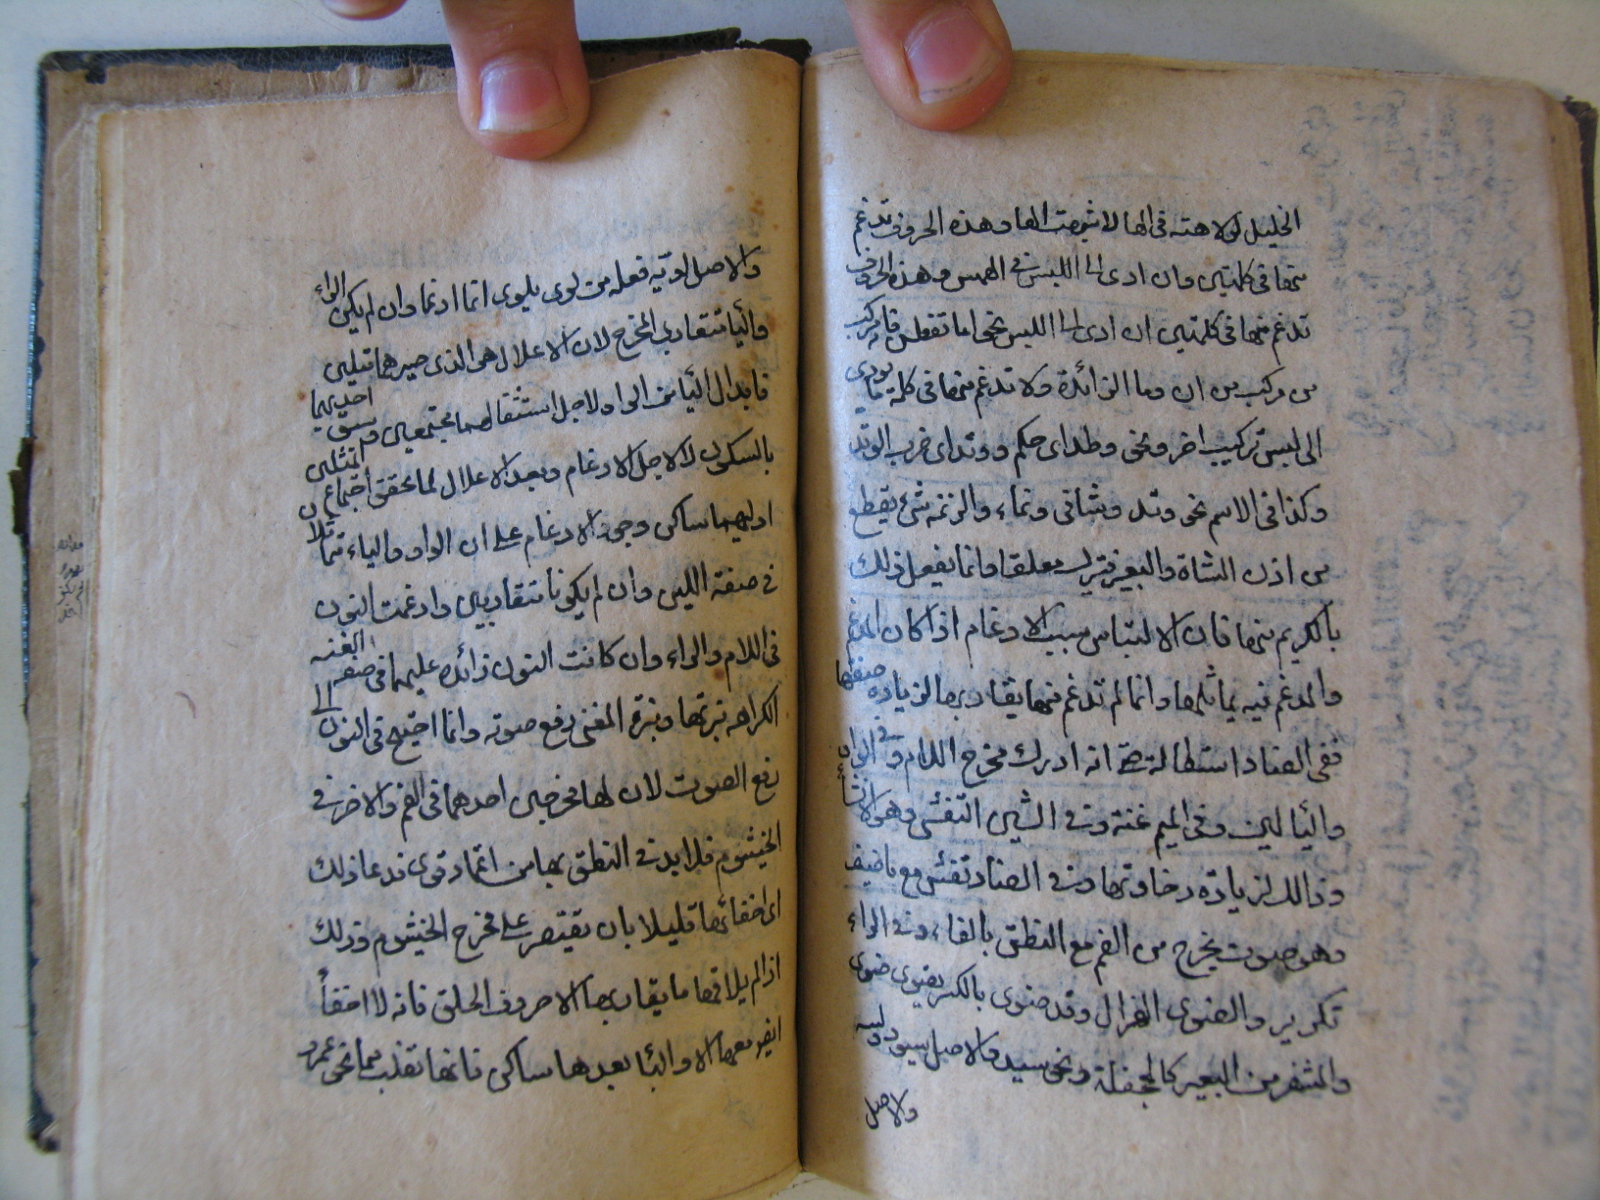 الخليل لولا هتة فى الها لاشبهت الها وهذه الحروف تدغم
منها فى كلمتين وان ادى الى اللبس فى الهمس وهذه الحروف
تدغم منها فى كلمتين ان ادى الى اللبس نحى اما تفعل فا مركب
من مركب من ان وما الزائدة ولا تدغم منها فى كلمة ما يودى
الى لبس تركيب اخر ونحى وطد اى حكم ووتد اى ضرب الوتد
وكذا فى الاسم نحى وتد وشا ونماء والزنمه شئ يقطع
من اذن الشاة والبعير فيترك معلقا وانما يفعل ذلك
بالكريم منها فان الالتباس سبب الادغام اذا كان المدغم
والمدغم فيه يماثلها وانما لم تدغم منها يقاربها لزيادة صفتها
ففى الضاد استطالة حتى انه ادرك مخرج اللام وفى الواو
والئيا لين وفى الميم غنة وفى الشين التفشى وهو الانتشا
وذالك لزيادة رخاوتها وفى الضاد تفشى مع
وهو صوت يخرج من الفم مع النطق بالفاء وفى الراء
تكرير والضوى الهزال وقد ضوى بالكسر يضوى ضوى
والمشفر من البعير كالجحفلة ونحى سيد والاصل سيود وليه
والاصل
والاصل لوية فعله من لوى يلوى انما ادغما وان لم يكن الواو
والئيا متقاربى المخرج لان الاعلال هى الذى صيرهما مثلين
فابدال الئيا من الواو لاجل استثقالهما مجتمعين وسبق احديهما
بالسكون لا لاجل الادغام وبعد الاعلال لما تحقق اجتماع المثلين
اوليهما ساكن وجب الادغام على ان الواو والياء تماثلا
فى صفة اللين وان لم يكونا متقاربين وادغمت النون
فى اللام والراء وان كانت النون زائده عليهما فى صفه الغنه
الكراهه نبرتها ونبرة المغنى رفع صوته وانما احتيج فى النون الى
رفع الصوت لان لها مخرجين احدهما فى الفم والاخر فى
الخيشوم فلا بد فى النطق بها من اعتماد قوى فدعا ذلك
اى اخفائها قليلا بان يقتصر على مخرج الخيشوم وذلك
اذا لم يلاقها ما يقاربها الا حروف الحلق فانه لا اخفأ
معها الا والبا بعدها ساكن فانها تقلب ميما نحى عمرو